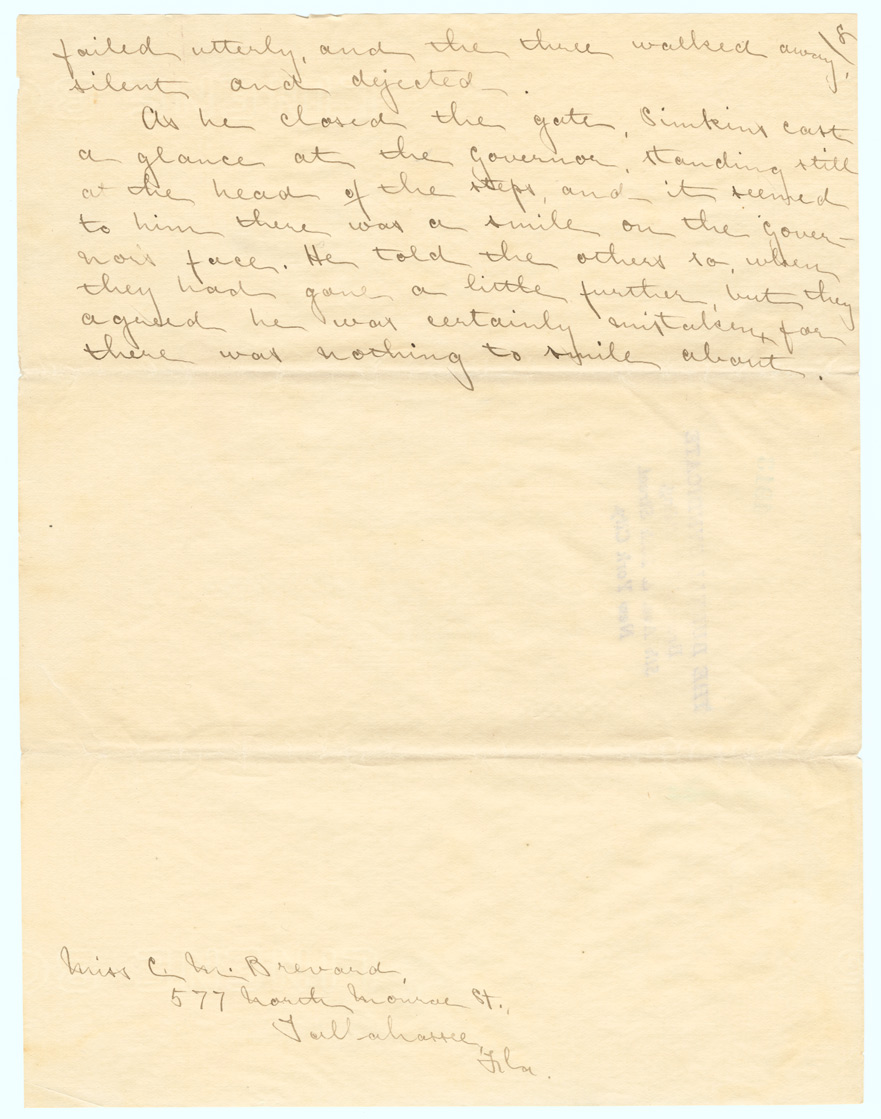 8
failed utterly, and the three walked away,
silent and dejected.
As he closed the gate, Simkins cast
a glance at the Governor, standing still
at the head of the steps, and it seemed
to him there was a smile on the Gover-
nor's face. He told the others so, when
they had gone a little further, but they
agreed he was certainly mistaken, for
there was nothing to smile about.
New York City
Miss C. M. Brevard,
577 North Monroe St.,
Tallahassee,
Fla.